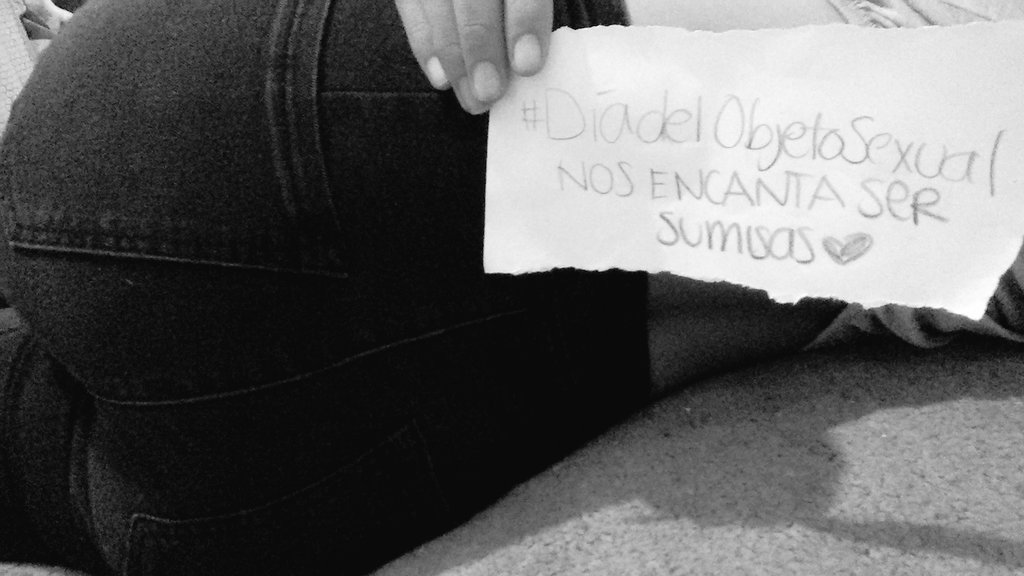 #DíadelObjetoSexual
NOS ENCANTA SER
sumisas